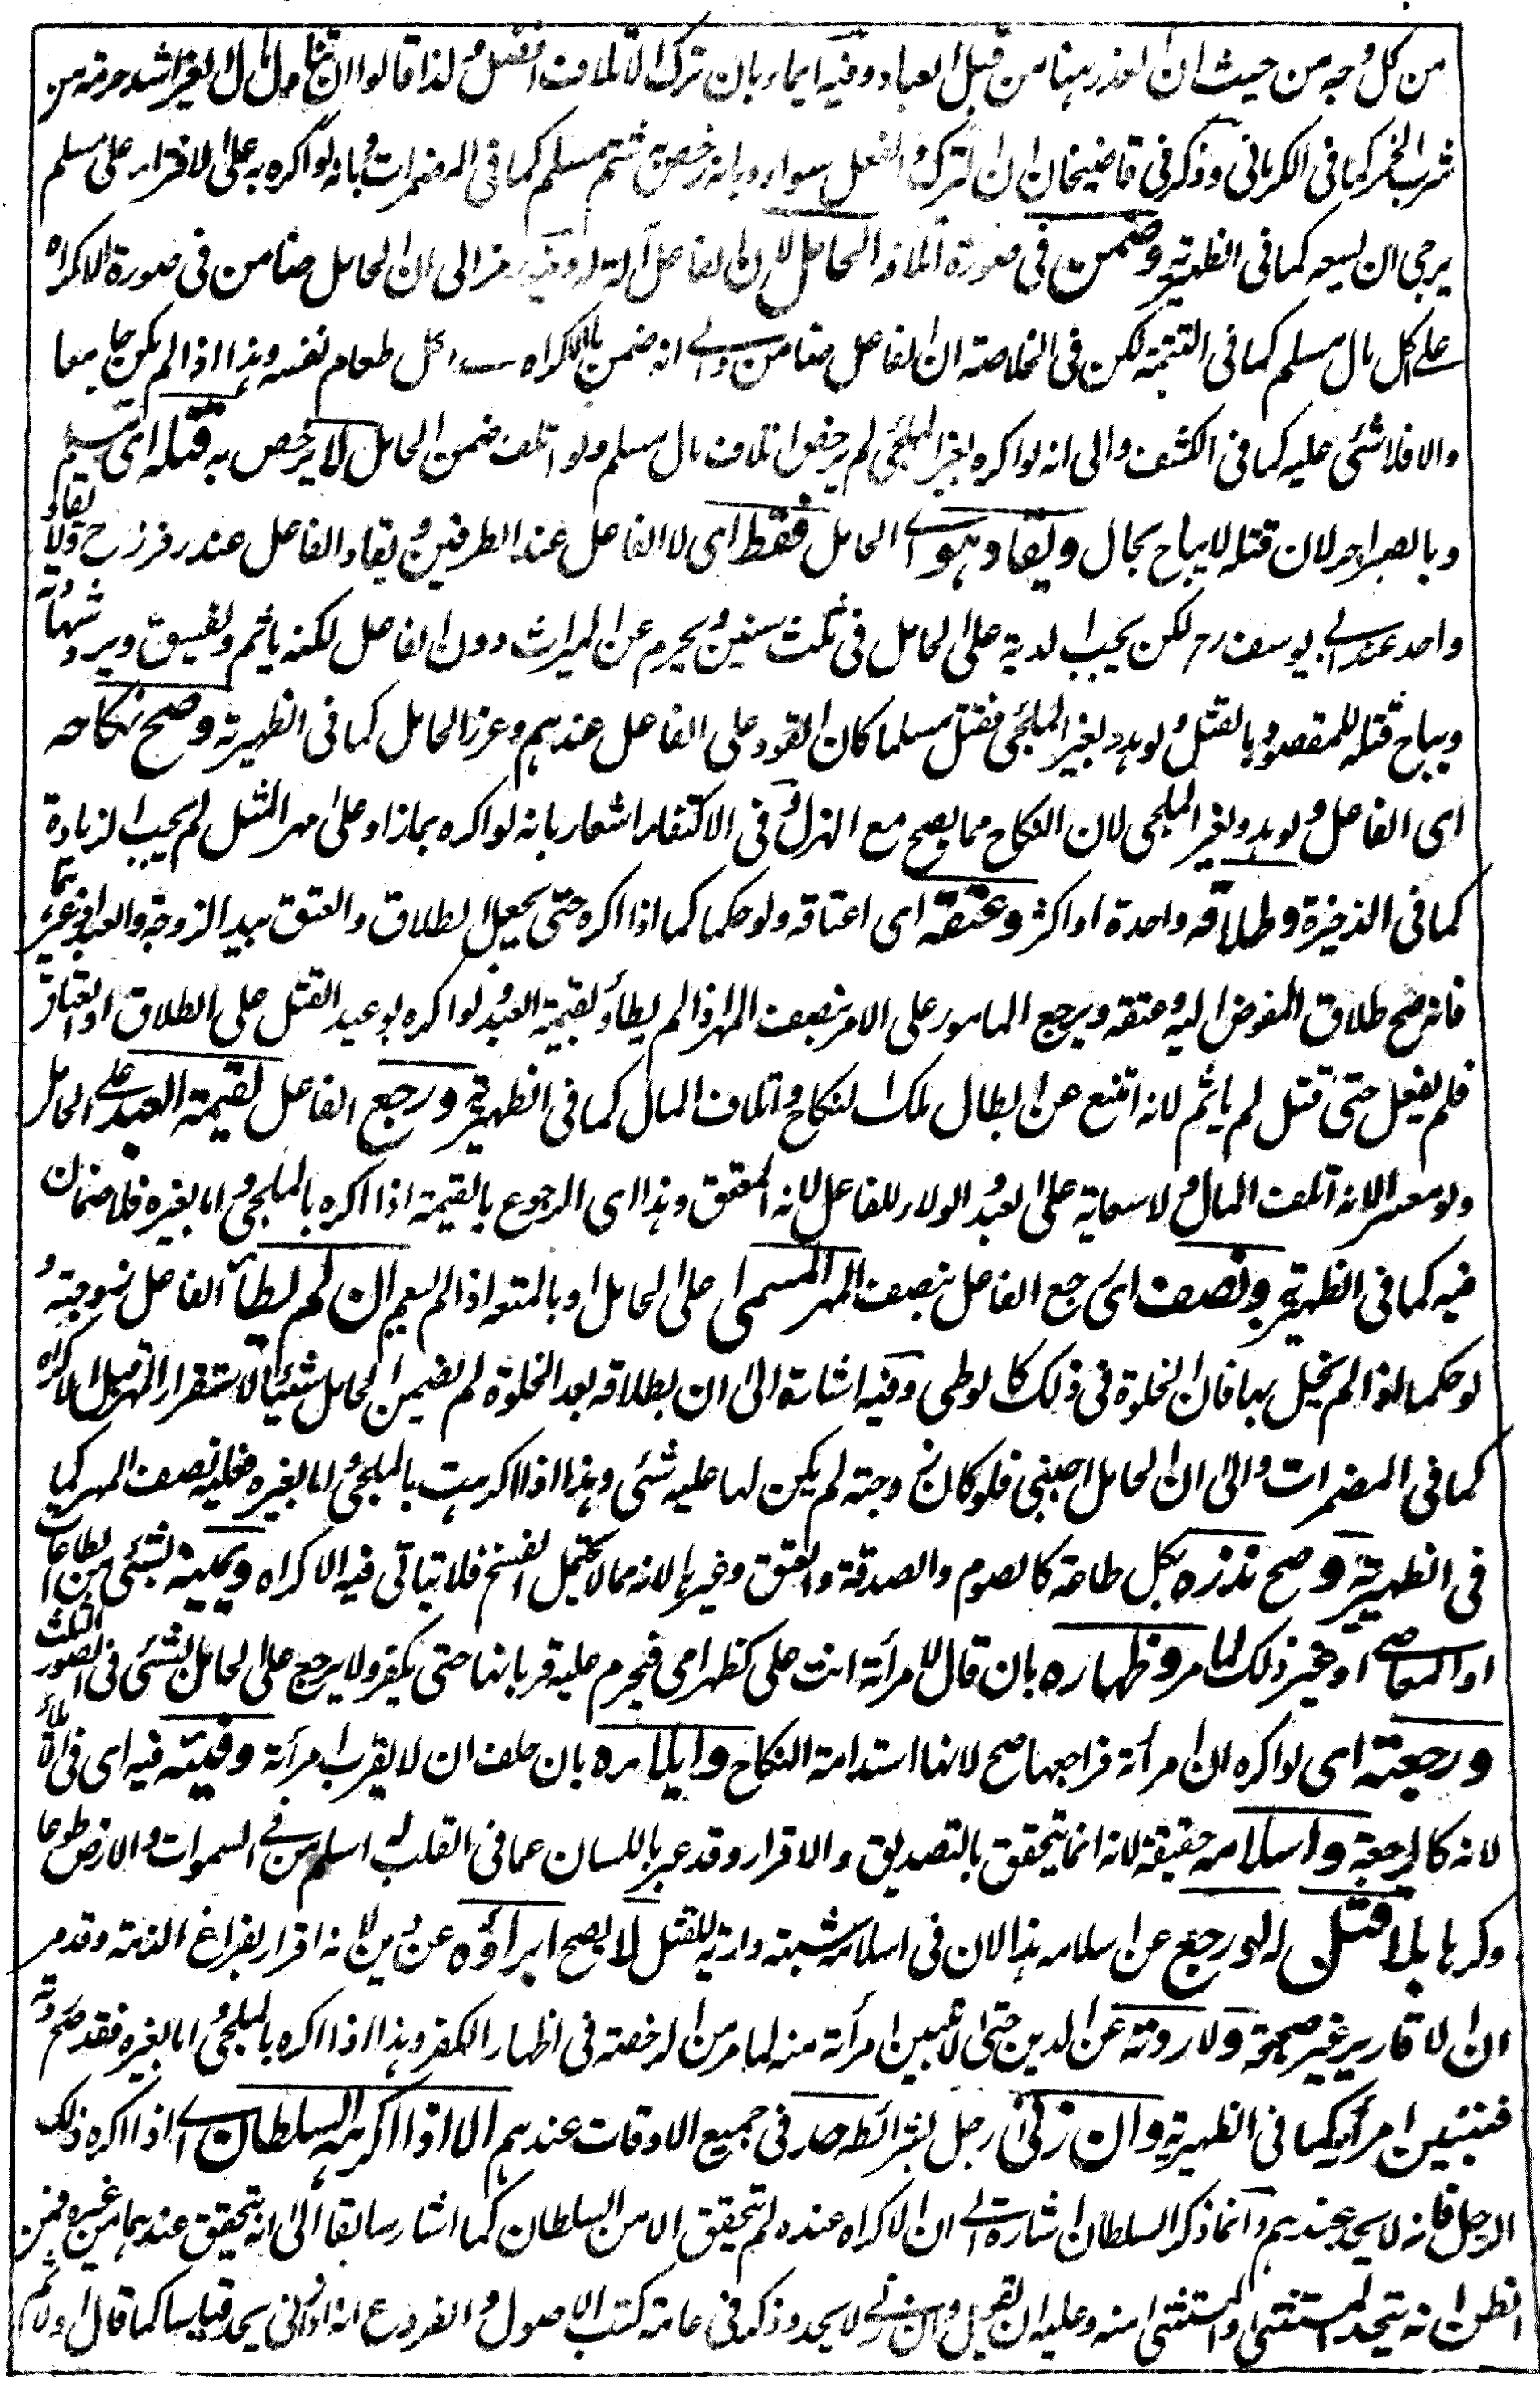 من كل وجه من حيث ان العذر ههنا من قبل العباد وفيه ايماء بان ترك الاتلاف افضل ولذا قالوا ان تناول مال الغير اشد حرمة من
شرب الخمر كما فى الكرمانى وذكر فى قاضيخان ان الترك والفعل سواء وبانه رخص شتم مسلم كما فى المضمرات وبانه لو اكره به على الافتراء على مسلم
يرجى ان يسعه كما فى الظهيرية وضمن فى صورة اتلافه الحامل لان الفاعل آلة له وفيه رمز الى ان الحامل ضامن فى صورة الاكراه
على اكل مال مسلم كما فى التتمة لكن فى الخلاصة ان الفاعل ضامن والى انه ضمن بالاكراه على اكل طعام نفسه وهذا اذا لم يكن جايعا
والا فلا شئ عليه كما فى الكشف والى انه لو اكره بغير الملجى لم يرخص اتلاف مال مسلم ولو اتلف ضمن الحامل لا يرخص به قتله اى مسلم
وبالصبر اجر لان قتله لا يباح بحال ويقاد هو اى الحامل فقط اى لا الفاعل عند الطرفين ويقاد الفاعل عند زفر رح ولا يقاد
واحد عند ابى يوسف رح لكن يجب الدية على الحامل فى ثلث سنين ويحرم عن الميراث دون الفاعل لكنه ياثم ويفسق ويرد شهادته
ويباح قتله للمقصود بالقتل ولو هدد بغير الملجى فقتل مسلما كان القود على الفاعل عندهم وعزر الحامل كما فى الظهيرية وصح نكاحه
اى الفاعل ولو هدد بغير الملجى لان النكاح مما يصح مع الهزل وفى الاكتفاء اشعار بانه لو اكره بما زاد على مهر المثل لم يجب الزيادة
كما فى الذخيرة وطلاقه واحدة او اكثر وعتقه اى اعتاقه ولو حكما كما اذا اكره حتى يجعل الطلاق والعتق بيد الزوجة والعبد او غيرهما
فانه صح طلاق المفوض اليه وعتقه ويرجع المامور على الامر بنصف المهر اذا لم يطأ وبقيمة العبد ولو اكره بوعيد القتل على الطلاق او العتاق
فلم يفعل حتى قتل لم ياثم لانه امتنع عن ابطال ملك النكاح واتلاف المال كما فى الظهيرية ورجع الفاعل بقيمة العبد على الحامل
ولو معسرا لانه اتلف المال ولا سعاية على العبد والولاء للفاعل لانه المعتق وهذا اى الرجوع بالقيمة اذا اكره بالملجى واما بغيره فلا ضمان
فيه كما فى الظهيرية ونصف اى رجع الفاعل بنصف المهر المسمى على الحامل او بالمتعة اذا لم يسم ان لم يطأ الفاعل بزوجته و
لو حكما اذا لم يخل بها فان الخلوة فى ذلك كالوطى وفيه اشارة الى ان بطلاقه بعد الخلوة لم يضمن الحامل شيئا لاستقرار المهر قبل الاكراه
كما فى المضمرات والى ان الحامل اجنبى فلو كان زوجته لم يكن لها عليه شئ وهذا اذا اكرهت بالملجى واما بغيره فعليه نصف المهر كما
فى الظهيرية وصح نذره بكل طاعة كالصوم والصدقة والعتق وغيرها لانه مما لا يحتمل الفسخ فلا يتاتى فيه الاكراه ويمينه بشئ من الطاعات
او المعاصى او غير ذلك لما مر وظهاره بان قال لامرأته انت على كظهر امى فيحرم عليه قربانها حتى يكفر ولا يرجع على الحامل بشئ فى الصور الثلث
ورجعته اى لو اكره ان امرأته فراجعها صح لانها استدامة النكاح وايلاءه بان حلف ان لا يقرب امرأته وفيئه فيه اى فى الايلاء
لانه كالرجعة واسلامه حقيقة لانه انما يتحقق بالتصديق والاقرار وقد عبر باللسان عما فى القلب له اسلم من فى السموات والارض طوعا
وكرها بلا قتل له لو رجع عن اسلامه هذا لان فى اسلامه شبهة دارية للقتل لا يصح ابراؤه عن دين لانه اقرار بفراغ الذمة وقد مر
ان الاقارير غير صحيحة ولا ردته عن الدين حتى لا تبين امرأته منه لما مر من الرخصة فى اظهار الكفر وهذا اذا اكره بالملجى واما بغيره فقد صح ردته
فتبين امرأته كما فى الظهيرية وان زنى رجل بشرائطه حد فى جميع الاوقات عندهم الا اذا اكرهه السلطان اى اذا اكره ذلك
الرجل فانه لا يحد عندهم وانما ذكر السلطان اشارة الى ان الاكراه عنده لم يتحقق الا من السلطان كما اشار سابقا الى انه يتحقق عندهما من غيره فمن
الظن انه يتحد المستثنى والمستثنى منه وعليه ان يقول وان زنى لا يحد وذكر فى عامة كتب الاصول والفروع انه اذا زنى يحد قياسا كما قال اولا ثم